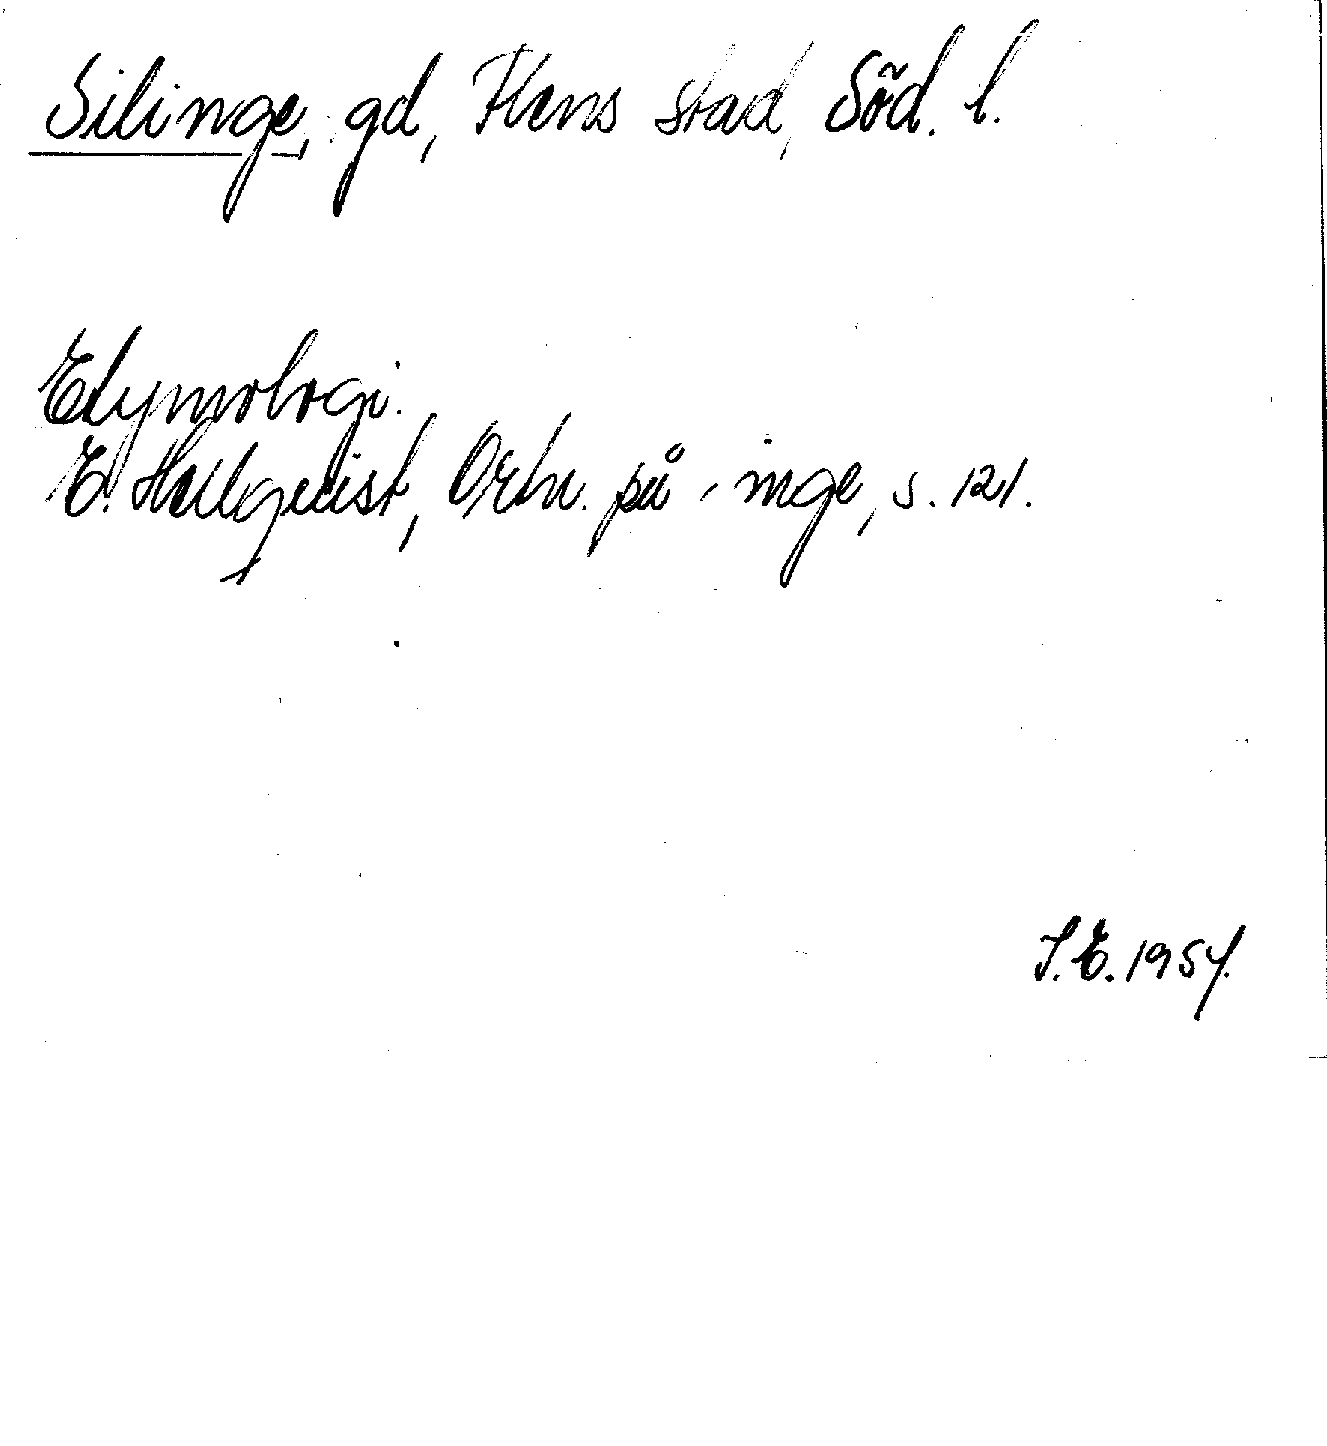 Silinge, gd, Flens stad, Söd. l.
Etymologi.
E. Hellquist, Ortn. på -inge, s. 121.
S.E. 1954.